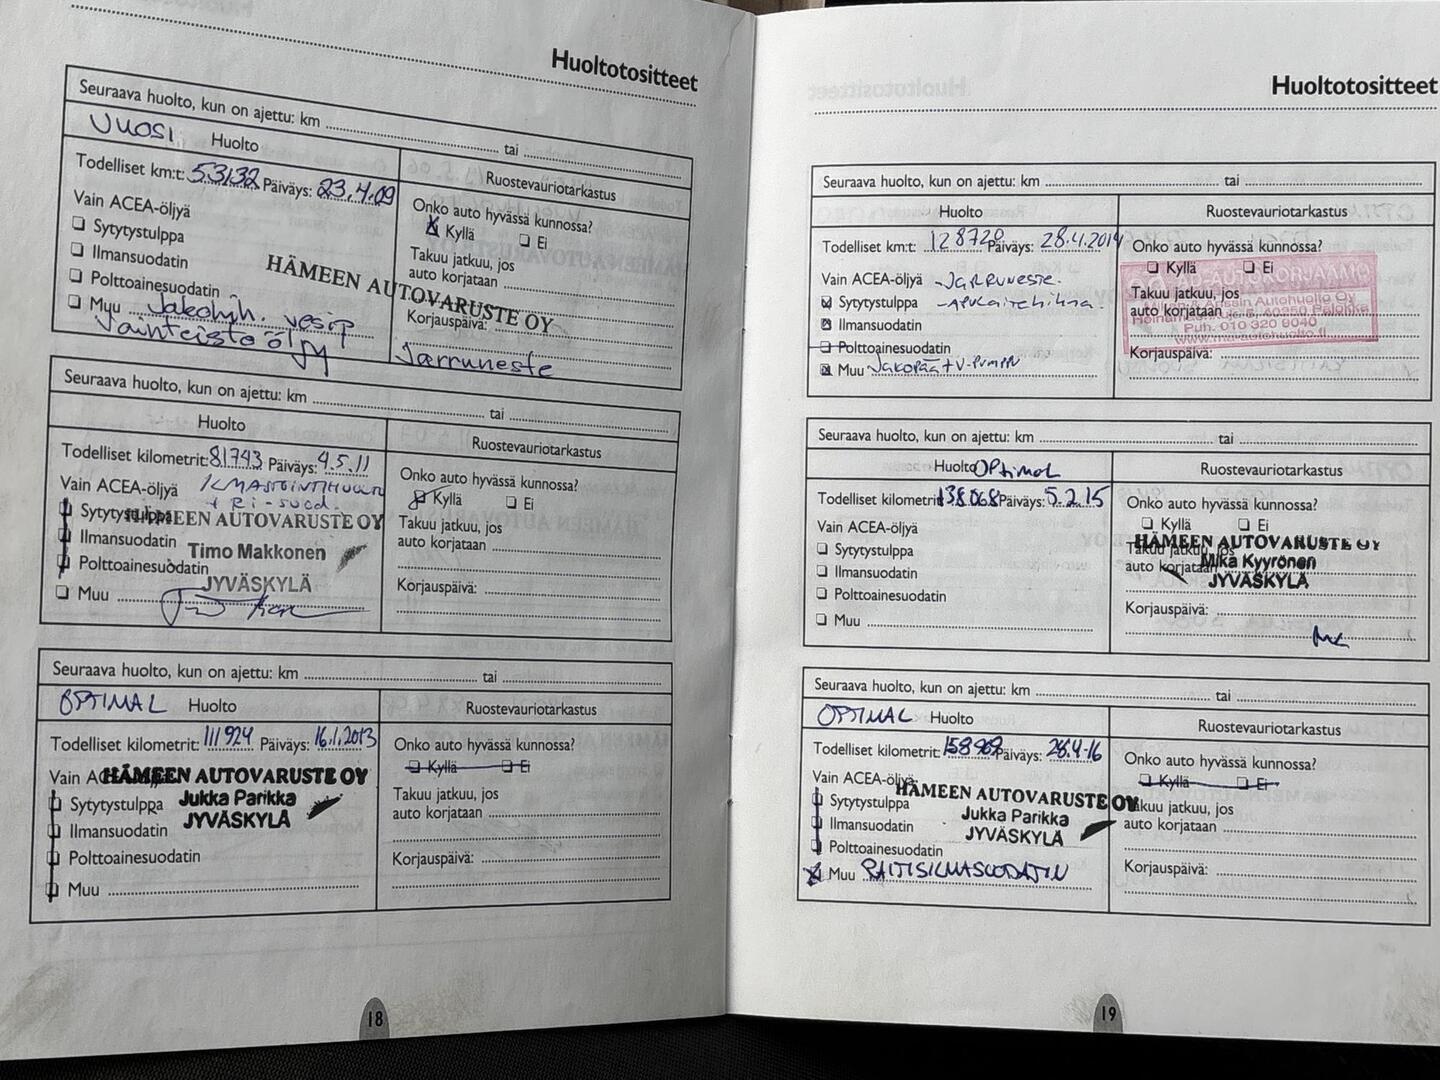 Huoltotositteet
Seuraava huolto, kun on ajettu: km tai
VUOSI Huolto
Ruostevauriotarkastus
Todelliset km:t: 53132 Päiväys: 23.4.09
Vain ACEA-öljyä
Sytytystulppa
Ilmansuodatin
Polttoainesuodatin
Muu Jakohih. vesip
Vaihteistoöljy
Onko auto hyvässä kunnossa?
Kyllä Ei
Takuu jatkuu, jos
auto korjataan
HÄMEEN AUTOVARUSTE OY
Korjauspäivä:
Jarruneste
Seuraava huolto, kun on ajettu: km tai
Huolto
Ruostevauriotarkastus
Todelliset kilometrit: 81743 Päiväys: 4.5.11
Vain ACEA-öljyä ILMASTOINTIHUOLTO
+ Ri-suod.
Sytytystulppa
HÄMEEN AUTOVARUSTE OY
Ilmansuodatin
Timo Makkonen
Polttoainesuodatin
JYVÄSKYLÄ
Muu
Onko auto hyvässä kunnossa?
Kyllä Ei
Takuu jatkuu, jos
auto korjataan
Korjauspäivä:
Seuraava huolto, kun on ajettu: km tai
OPTIMAL Huolto
Ruostevauriotarkastus
Todelliset kilometrit: 111924 Päiväys: 16.1.2013
Vain ACEA-öljyä
HÄMEEN AUTOVARUSTE OY
Jukka Parikka
JYVÄSKYLÄ
Sytytystulppa
Ilmansuodatin
Polttoainesuodatin
Muu
Onko auto hyvässä kunnossa?
Kyllä Ei
Takuu jatkuu, jos
auto korjataan
Korjauspäivä:
18
Huoltotositteet
Seuraava huolto, kun on ajettu: km tai
Huolto
Ruostevauriotarkastus
Todelliset km:t: 128720 Päiväys: 28.4.2014
Vain ACEA-öljyä -JARRUNESTE
Sytytystulppa -APULAITEHIHNA
Ilmansuodatin
Polttoainesuodatin
Muu Jakopää+V-PUMPPU
Onko auto hyvässä kunnossa?
Kyllä Ei
Takuu jatkuu, jos
auto korjataan
Autohuolto Oy
40250 Palokka
Puh. 010 320 9040
Korjauspäivä:
Seuraava huolto, kun on ajettu: km tai
Huolto OPtimal
Ruostevauriotarkastus
Todelliset kilometrit: 138068 Päiväys: 5.2.15
Vain ACEA-öljyä
Sytytystulppa
Ilmansuodatin
Polttoainesuodatin
Muu
Onko auto hyvässä kunnossa?
Kyllä Ei
HÄMEEN AUTOVARUSTE OY
Takuu jatkuu, jos
Mika Kyyrönen
auto korjataan
JYVÄSKYLÄ
Korjauspäivä:
Seuraava huolto, kun on ajettu: km tai
OPTIMAL Huolto
Ruostevauriotarkastus
Todelliset kilometrit: Päiväys: 28.4-16
Vain ACEA-öljyä
HÄMEEN AUTOVARUSTE OY
Jukka Parikka
JYVÄSKYLÄ
Sytytystulppa
Ilmansuodatin
Polttoainesuodatin
Muu RAITISILMASUODATIN
Onko auto hyvässä kunnossa?
Kyllä Ei
Takuu jatkuu, jos
auto korjataan
Korjauspäivä:
19